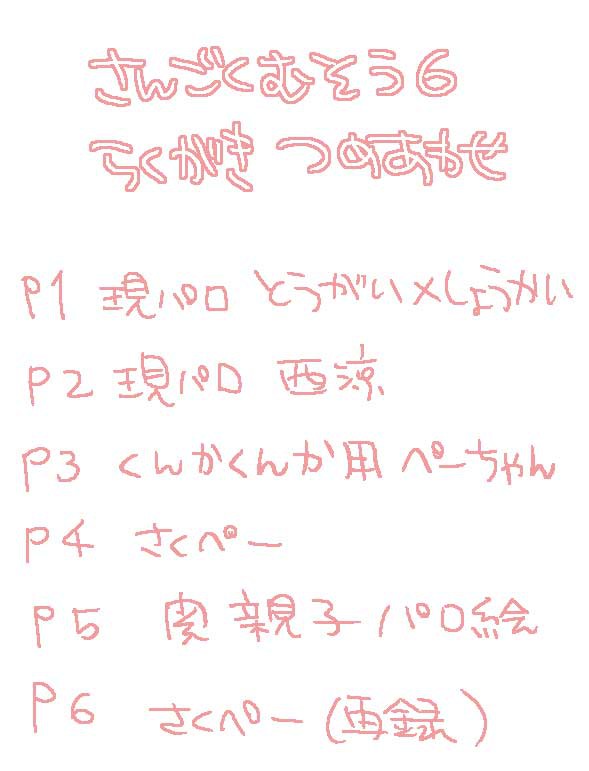 さんごくむそう6
らくがき つめあわせ
P1 現パロ とうがい×しょうかい
P2 現パロ 西涼
P3 くんかくんか用 ぺーちゃん
P4 さくぺー
P5 親子パロ絵
P6 さくぺー(再録)